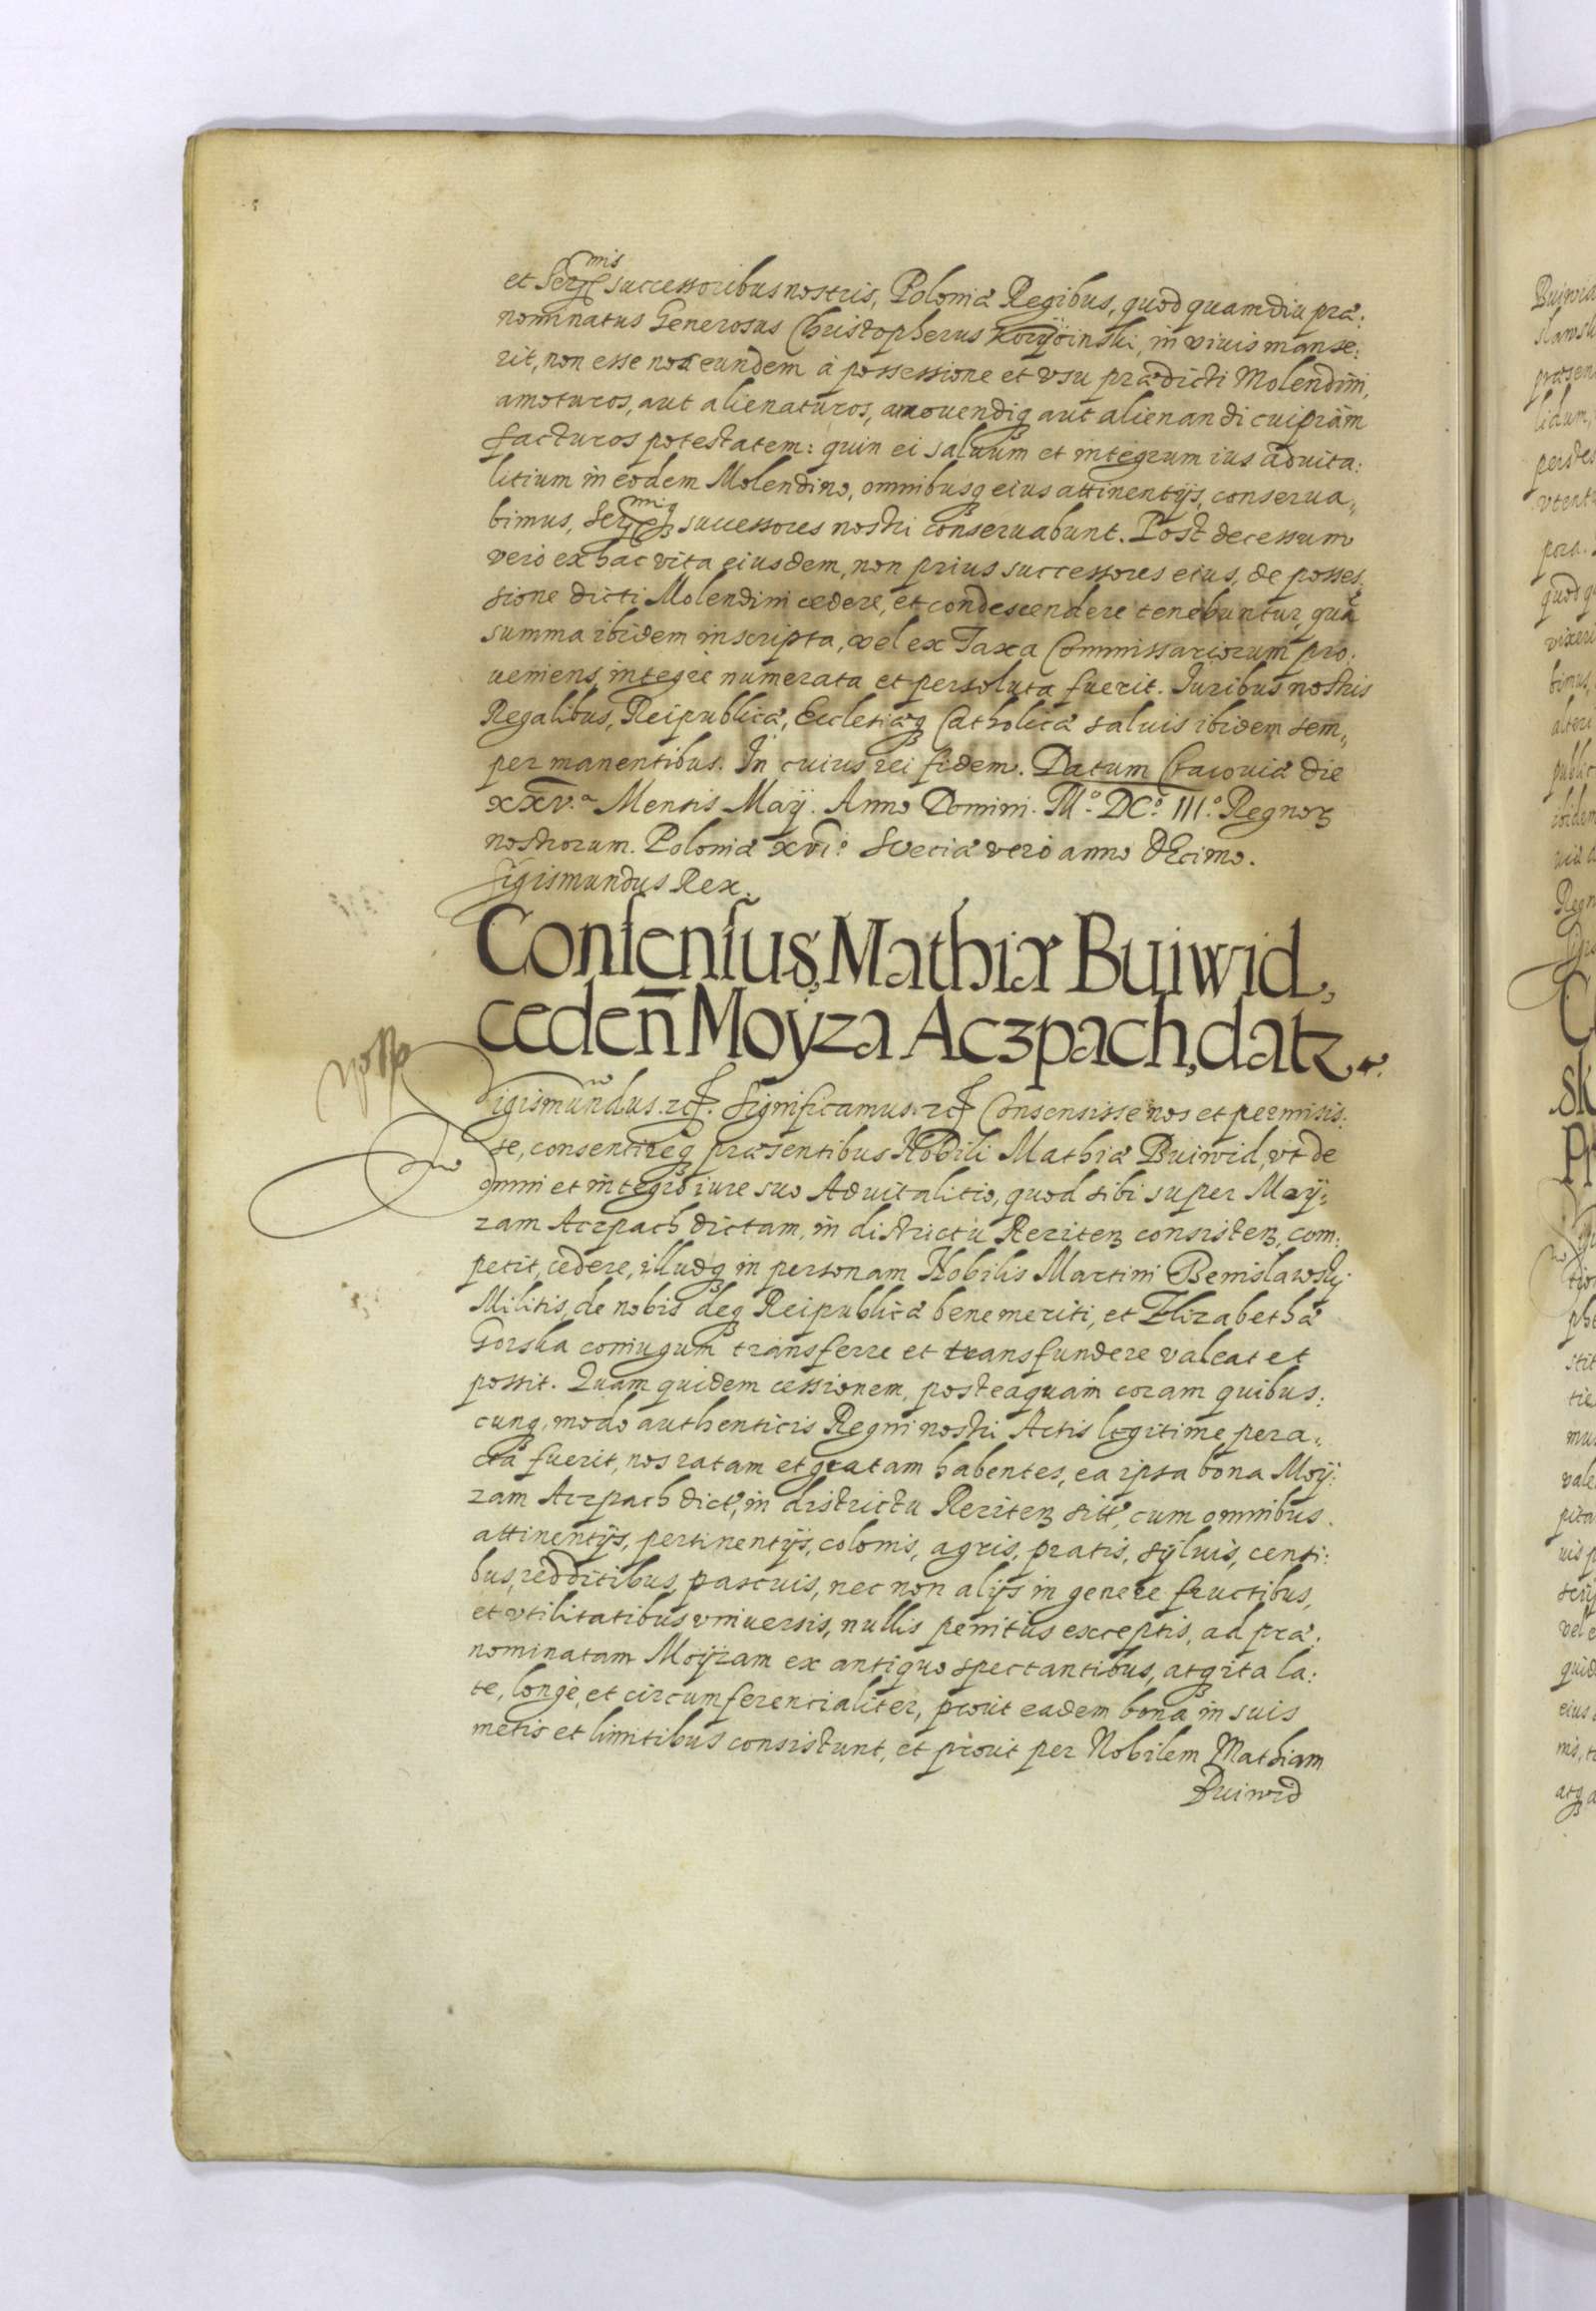 et Ser[mis] successoribus nostris, Poloniæ Regibus, quod quamdiu præ:
nominatus Generosus Christopherus Koryćinski, in viuis manse:
rit, non esse nos eundem à possessione et vsu prædicti Molendini,
amoturos, aut alienaturos, amouendiq3 aut alienandi cuipiam
facturos potestatem: quin ei saluum et integrum ius aduita:
litium in eodem Molendino, omnibusq3 eius attinentijs, conserua„
bimus, Ser[miq3] successores nostri conseruabunt. Post decessum
vero ex hac vita eiusdem, non prius successores eius, de posses
sione dicti Molendini cedere, et condescendere tenebuntur, quã
summa ibidem inscripta, vel ex Taxa Commissariorum pro:
ueniens, integrè numerata et persoluta fuerit. Iuribus nostris
Regalibus, Reipublicæ, Ecclesiæq3 Catholicæ saluis ibidem sem„
per manentibus. In cuius rei fidem. Datum Cracouiæ die
XXV.a Mensis Maÿ. Anno Domini. Mº. DCº. IIIº. Regnor3
nostrorum. Poloniæ xviº Sveciæ verò anno dEcimo.
Sigismundus Rex.
Consensus, Mathiæ Buiwid,
ceden̄ Moÿza Acʒpach, datʒ.
Sigismundus. rc. Significamus. rc Consensisse nos et permisis:
se, consentireq3 præsentibus Nobili Mathiæ Buiwid, vt de
omni et integro iure suo Aduitalitio, quod sibi super Moÿ:
zam Aczpach dictam, in districtu Reziten3 consisten3, com:
petit, cedere, illudq3 in personam Nobilis Martini Benislawskj
Militis, de nobis deq3 Reipublica benemeriti, et Elizabethæ
Gorska coniugum transferre et transfundere valeat et
possit. Quam quidem cessionem, posteaquam coram quibus:
cunq3, modo authenticis Regni nostri Actis legitime pera„
cta fuerit, nos ratam et gratam habentes, ea ipsa bona Moÿ:
zam Aczpach dict, in districtu Reziten3 sitt, cum omnibus
attinentijs, pertinentijs, colonis, agris, pratis, syluis, censi:
bus, redditibus, pascuis, nec non alijs in genere fructibus,
et vtilitatibus vniuersis, nullis penitùs exceptis, ad præ:
nominatam Moÿzam ex antiquo spectantibus, atq3 ita la:
te, longè, et circumferencialiter, prout eadem bona in suis
metis et limitibus consistunt, et prout per Nobilem Mathiam
Buiwid